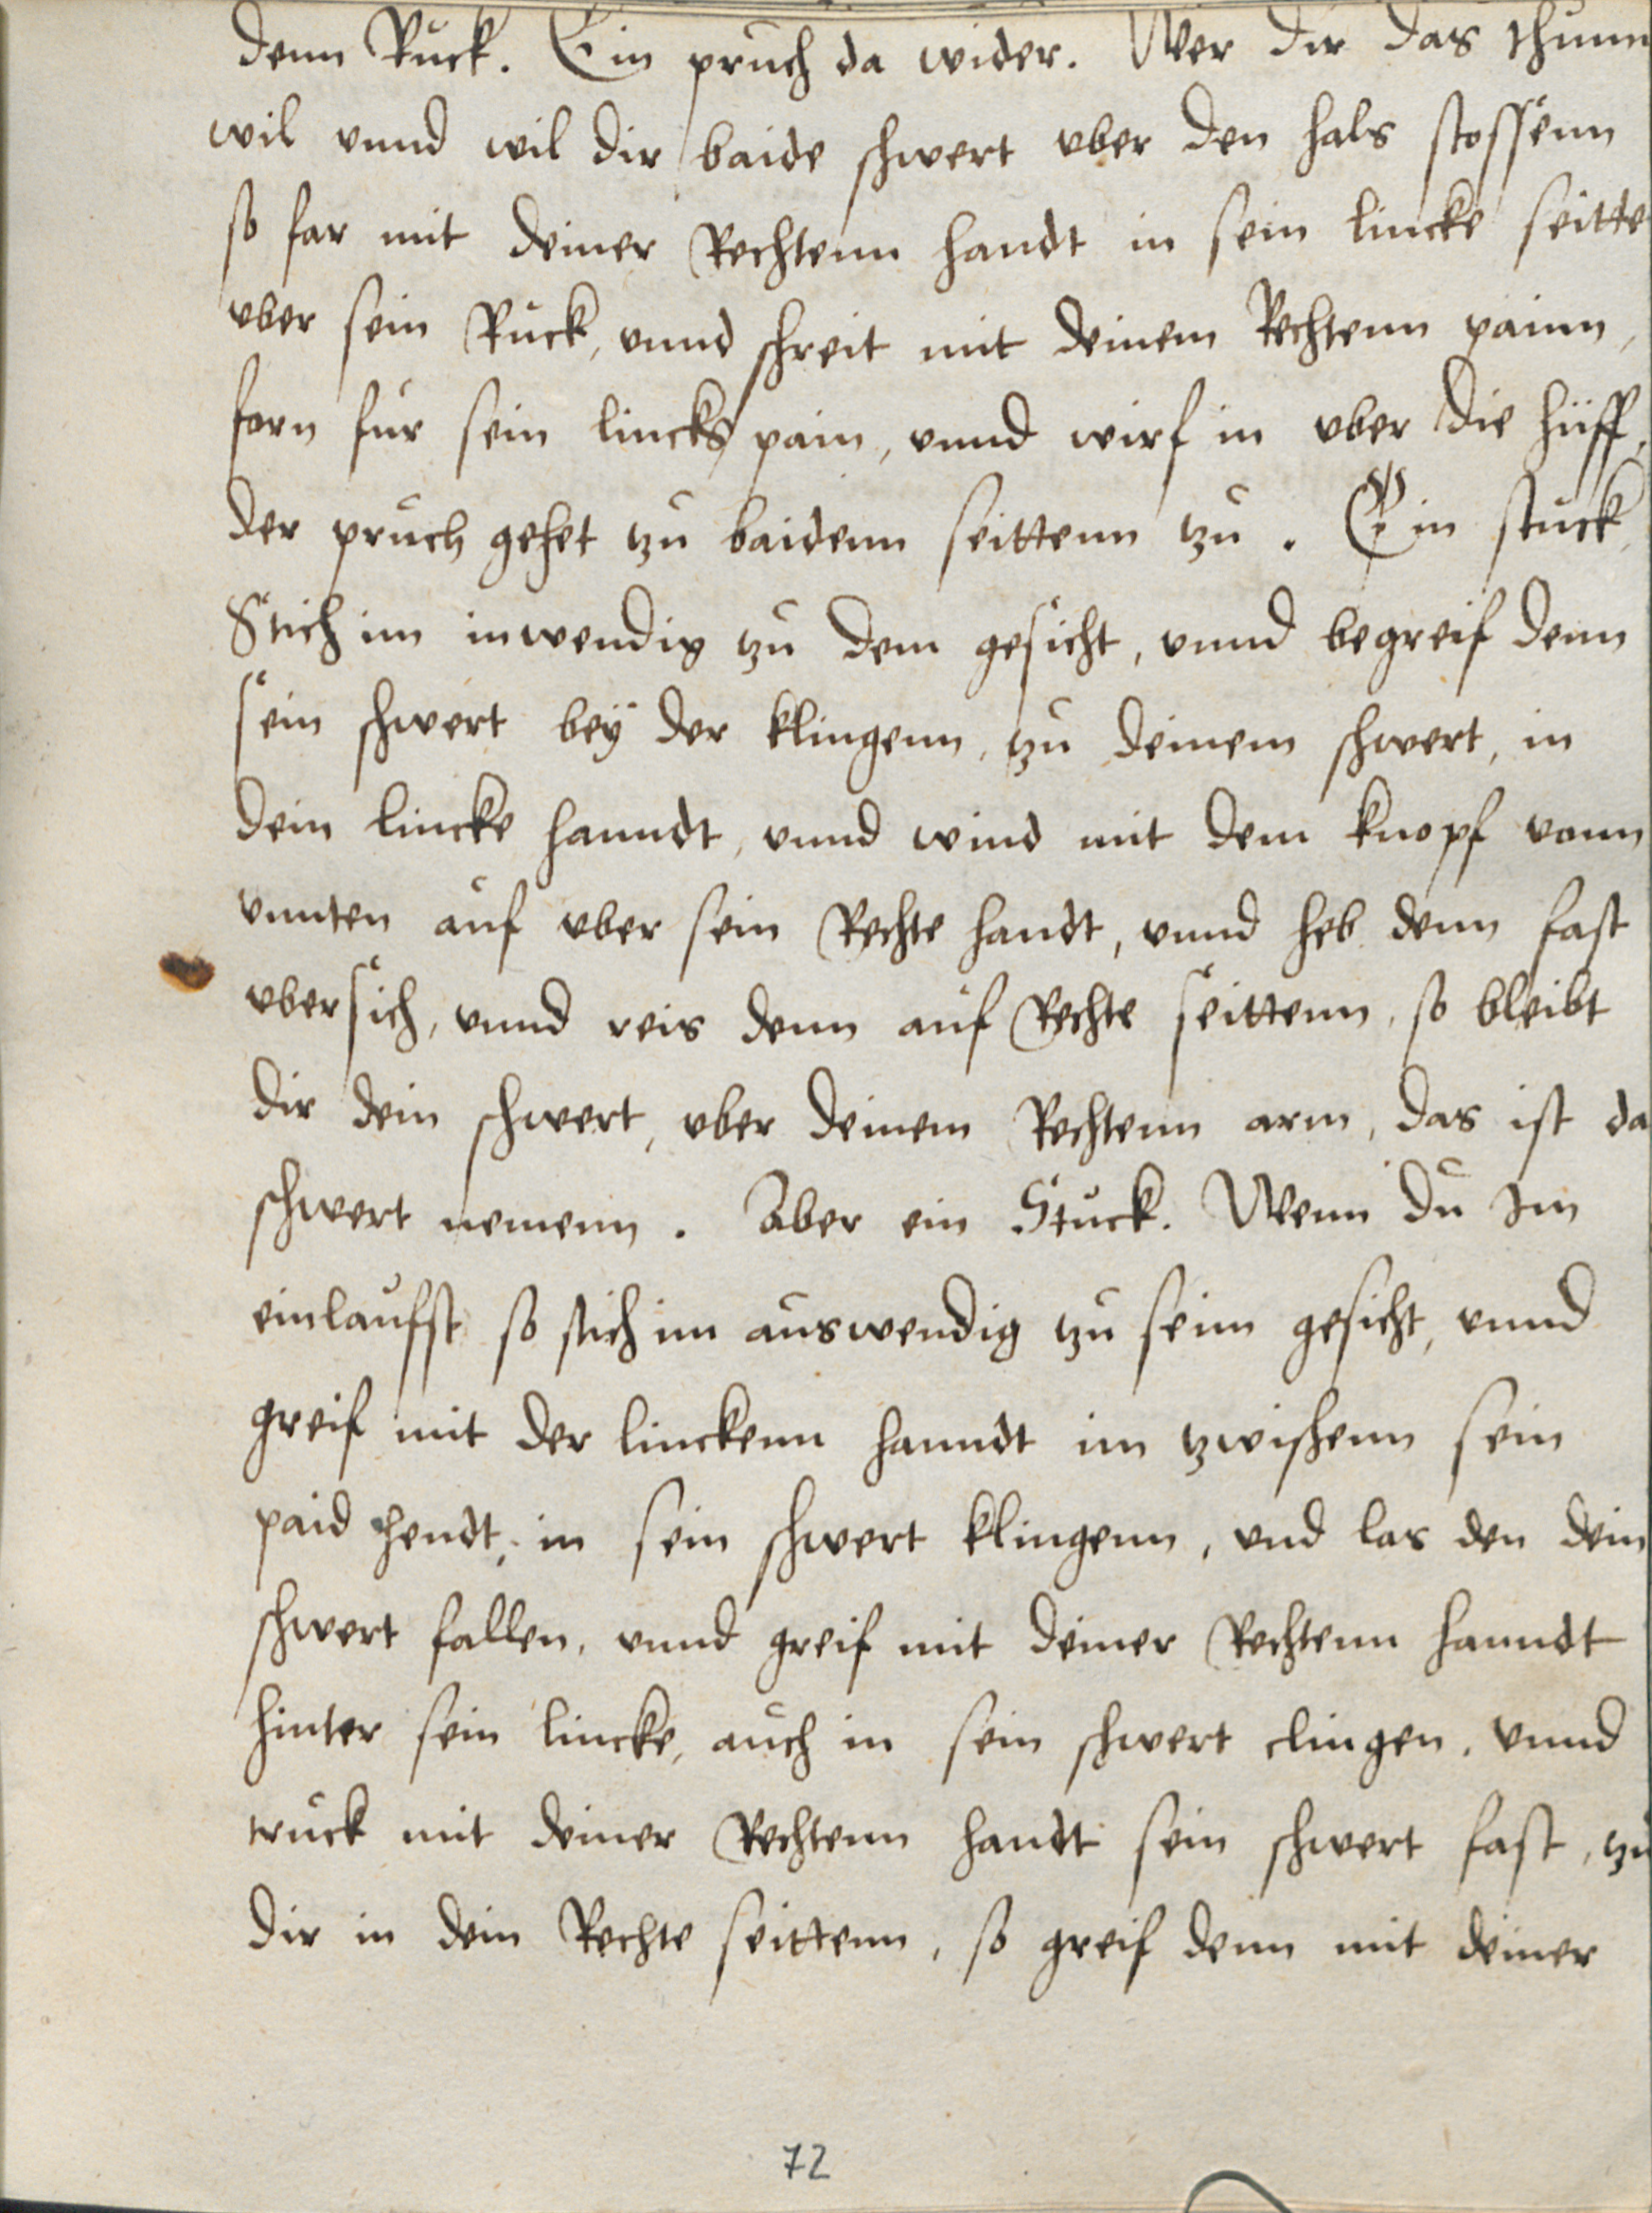 denn Ruck. Ein pruch da wider. Wer dir das thunn
wil vnnd wil dir baide schwert vber den hals stossenn
so far mit deiner Rechtenn handt in sein lincke seitte
vber sein Ruck, vnnd schreit mit deinem Rechtenn painn,
forn fur sein lincks pain, vnnd wirf in vber die hüff,
der pruch gehet zu baidenn seittenn zu. Ein stuck,
Stich im inwendig zu dem gesicht, vnnd begreif denn
sein schwert beÿ der klingenn, zu deinem schwert, in
dein lincke hanndt, vnnd wind mit dem knopf vonn
vnnten auf vber sein Rechte handt, vnnd heb denn fast
vbersich, vnnd reis denn auf Rechte seittenn, so bleibt
dir dein schwert, vber deinem Rechtenn arm, das ist da
schwert nemenn. Aber ein Stuck. Wenn du Im
einlaufst so stich im auswendig zu seim gesicht, vnnd
greif mit der linckenn hanndt im zwischenn sein
paid hendt, in sein schwert klingenn, vnd las den dein
schwert fallen, vnnd greif mit deiner Rechtenn hanndt
hinter sein lincke, auch in sein schwert clingen, vnnd
truck mit deiner Rechtenn handt sein schwert fast, zu
dir in dein Rechte seittenn, so greif denn mit deiner
72